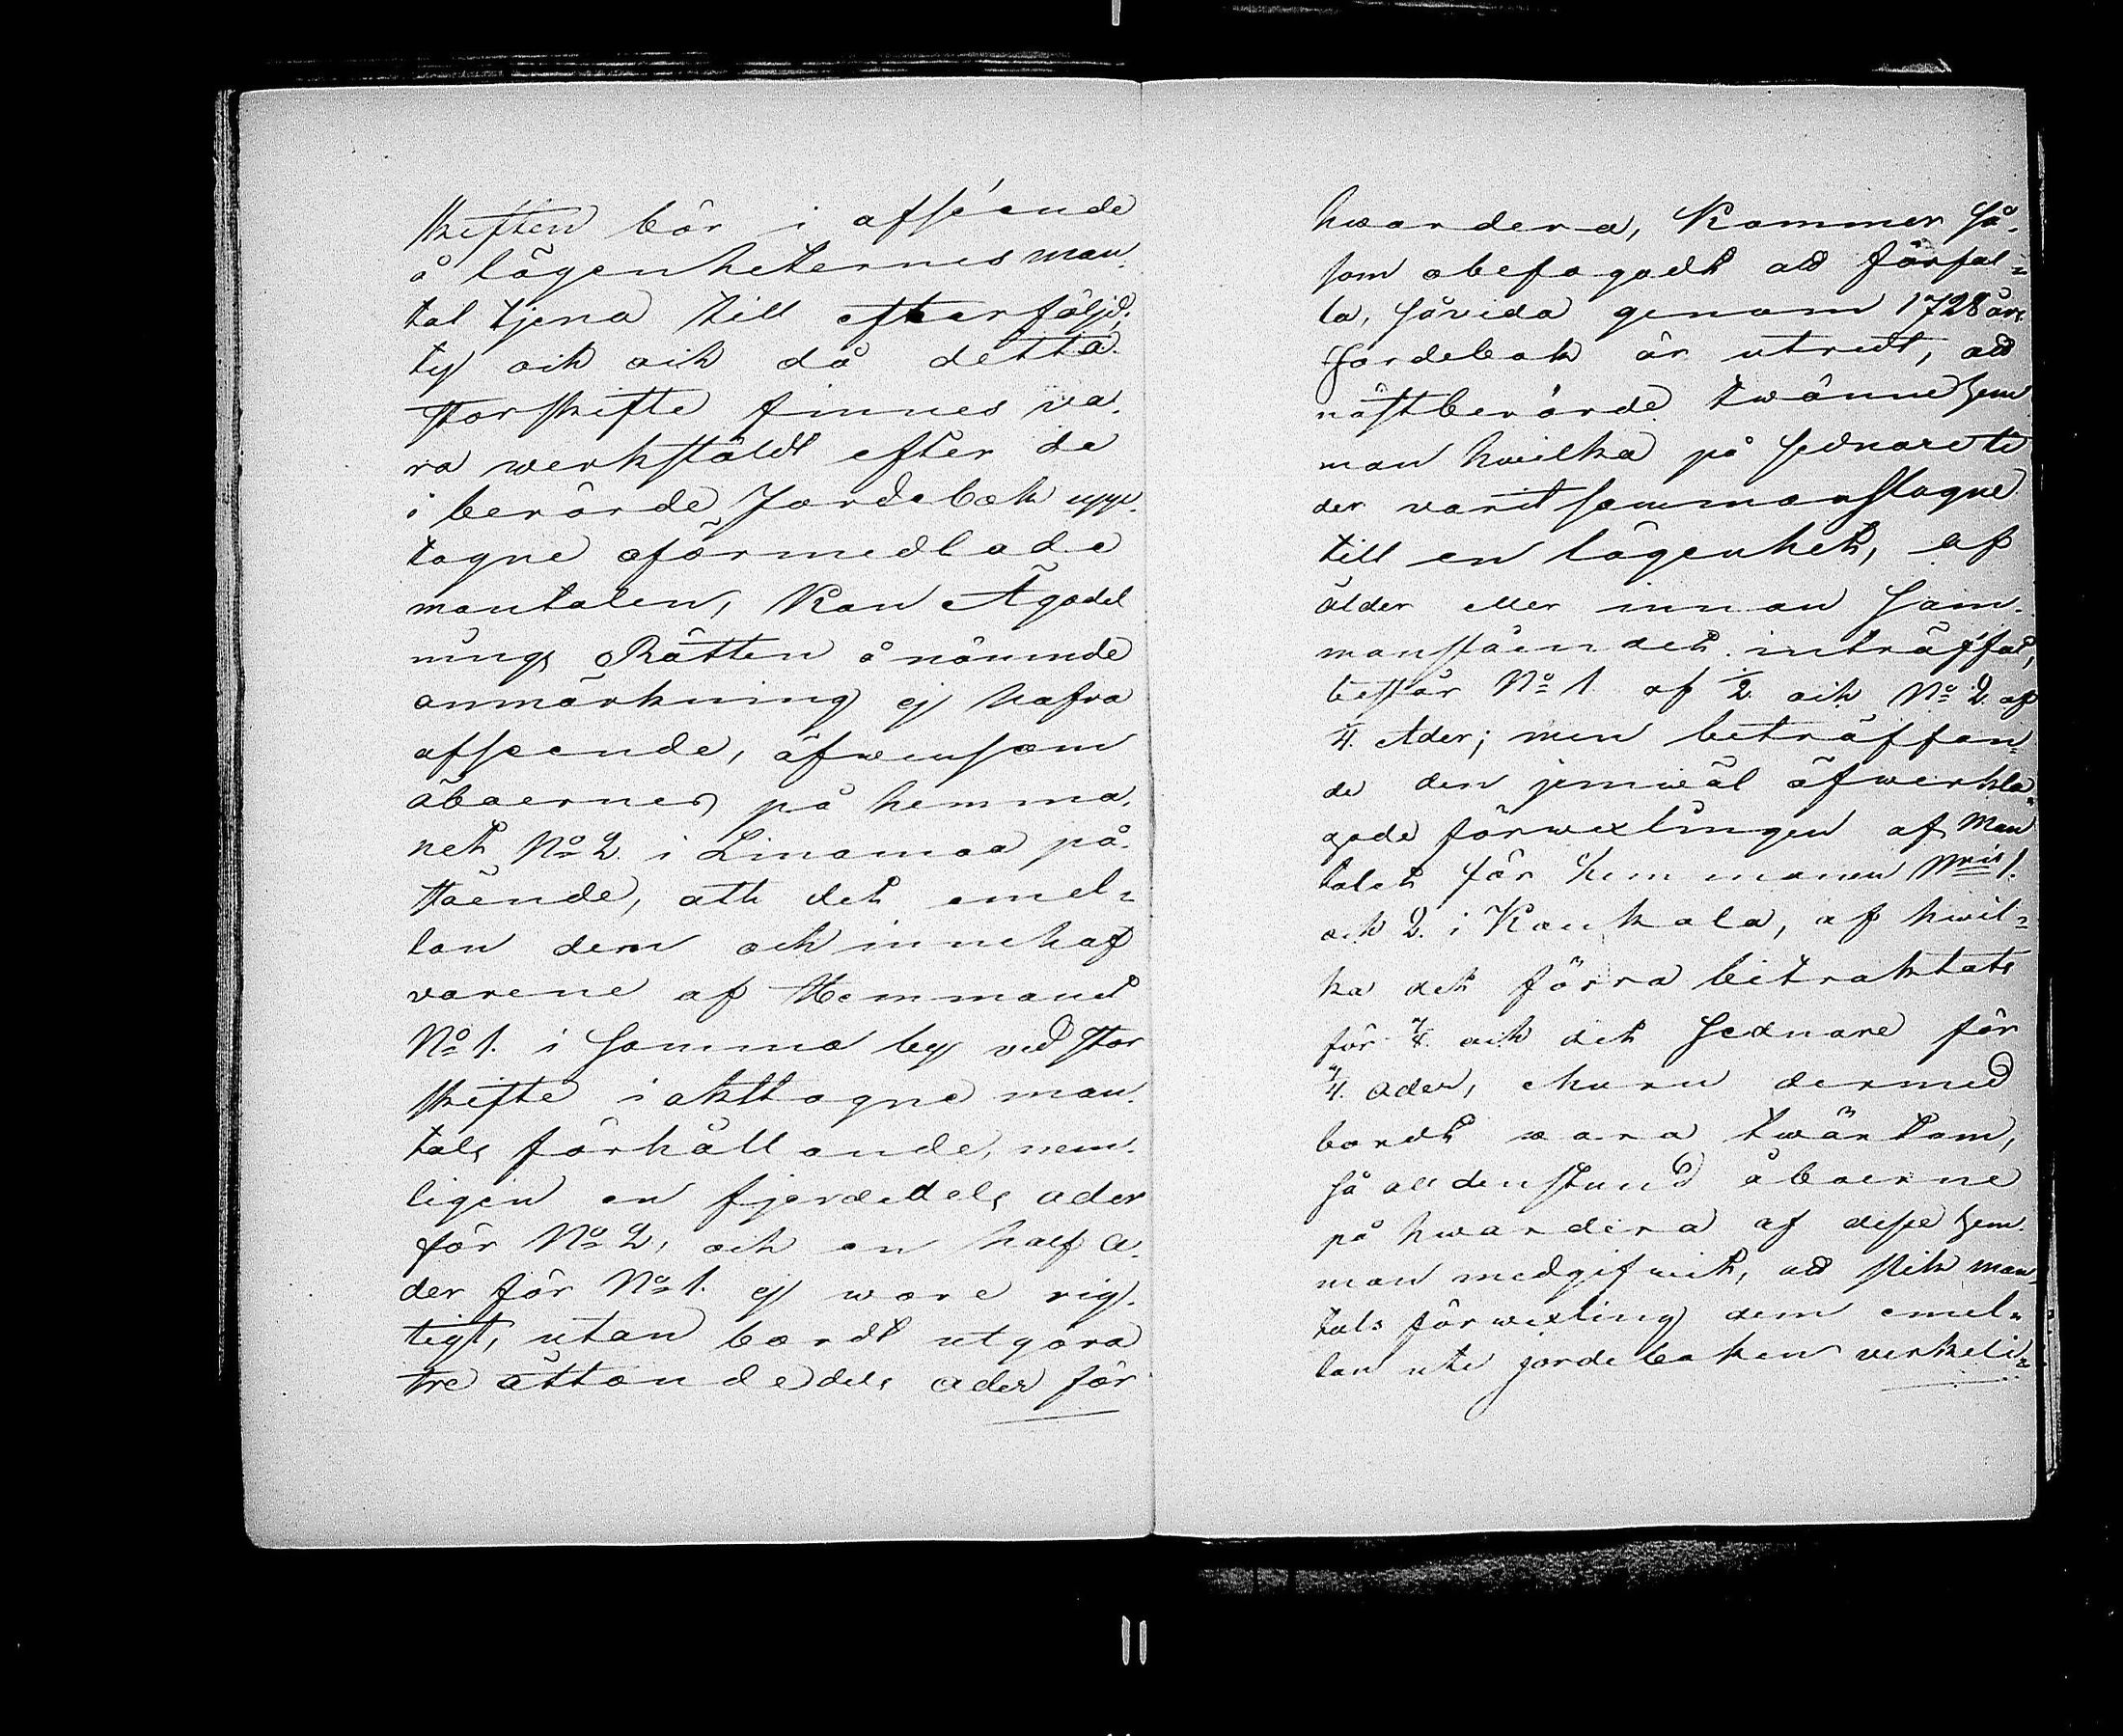 skiften bör i afseénde
å lägenheternes man-
tal tjena till efterföljd;
ty och och då detta
storskifte finnes va-
ra werkstäldt efter de
i berörde Jordebok upp-
tagne oförmedlade
mantalen, kan Ägodel
nings Rätten å nämnde
anmärkning ej hafva
afseende, äfwensom
åboernes på hemma-
net No 2. i Linamaa på-
stående, att det emel-
lan dem och innehaf
varene af Hemmanet
No 1. i samma by vid stor
skifte i akttagne man-
tals förhållande, nem-
ligen en fjerdedels ader
för No 2, och en half a-
der för No 1. ej wore rig-
tigt, utan bordt utgöra
tre åttondedels ader för
hvardera, kommer så-
som obefogadt att förfal-
la, såvida genom 1728 års
Jordebok är utredt, att
nästberörde twänne hem
man hwilka på sednare ti
der varit sammanslagne
till en lägenhet, af
ålder eller innan sam-
manslåendet inträffat,
består No 1 af 1/2 och No 2. af
1/4. Ader; men beträffan-
de den jemwäl öfwerkla-
gade förwexlingen af Man
talet för hemmanen Nris 1.
och 2. i Koukola, af hwil-
ka det förra betraktats
för 7/8. och det sednare för
3/4. ader, ehuru dermed
bordt wara twärtom,
så alldenstund åboerne
på hwardera af desse hem-
man medgifwit, att slik man-
tals förwexling dem emel-
lan uti jordeboken verkeli-